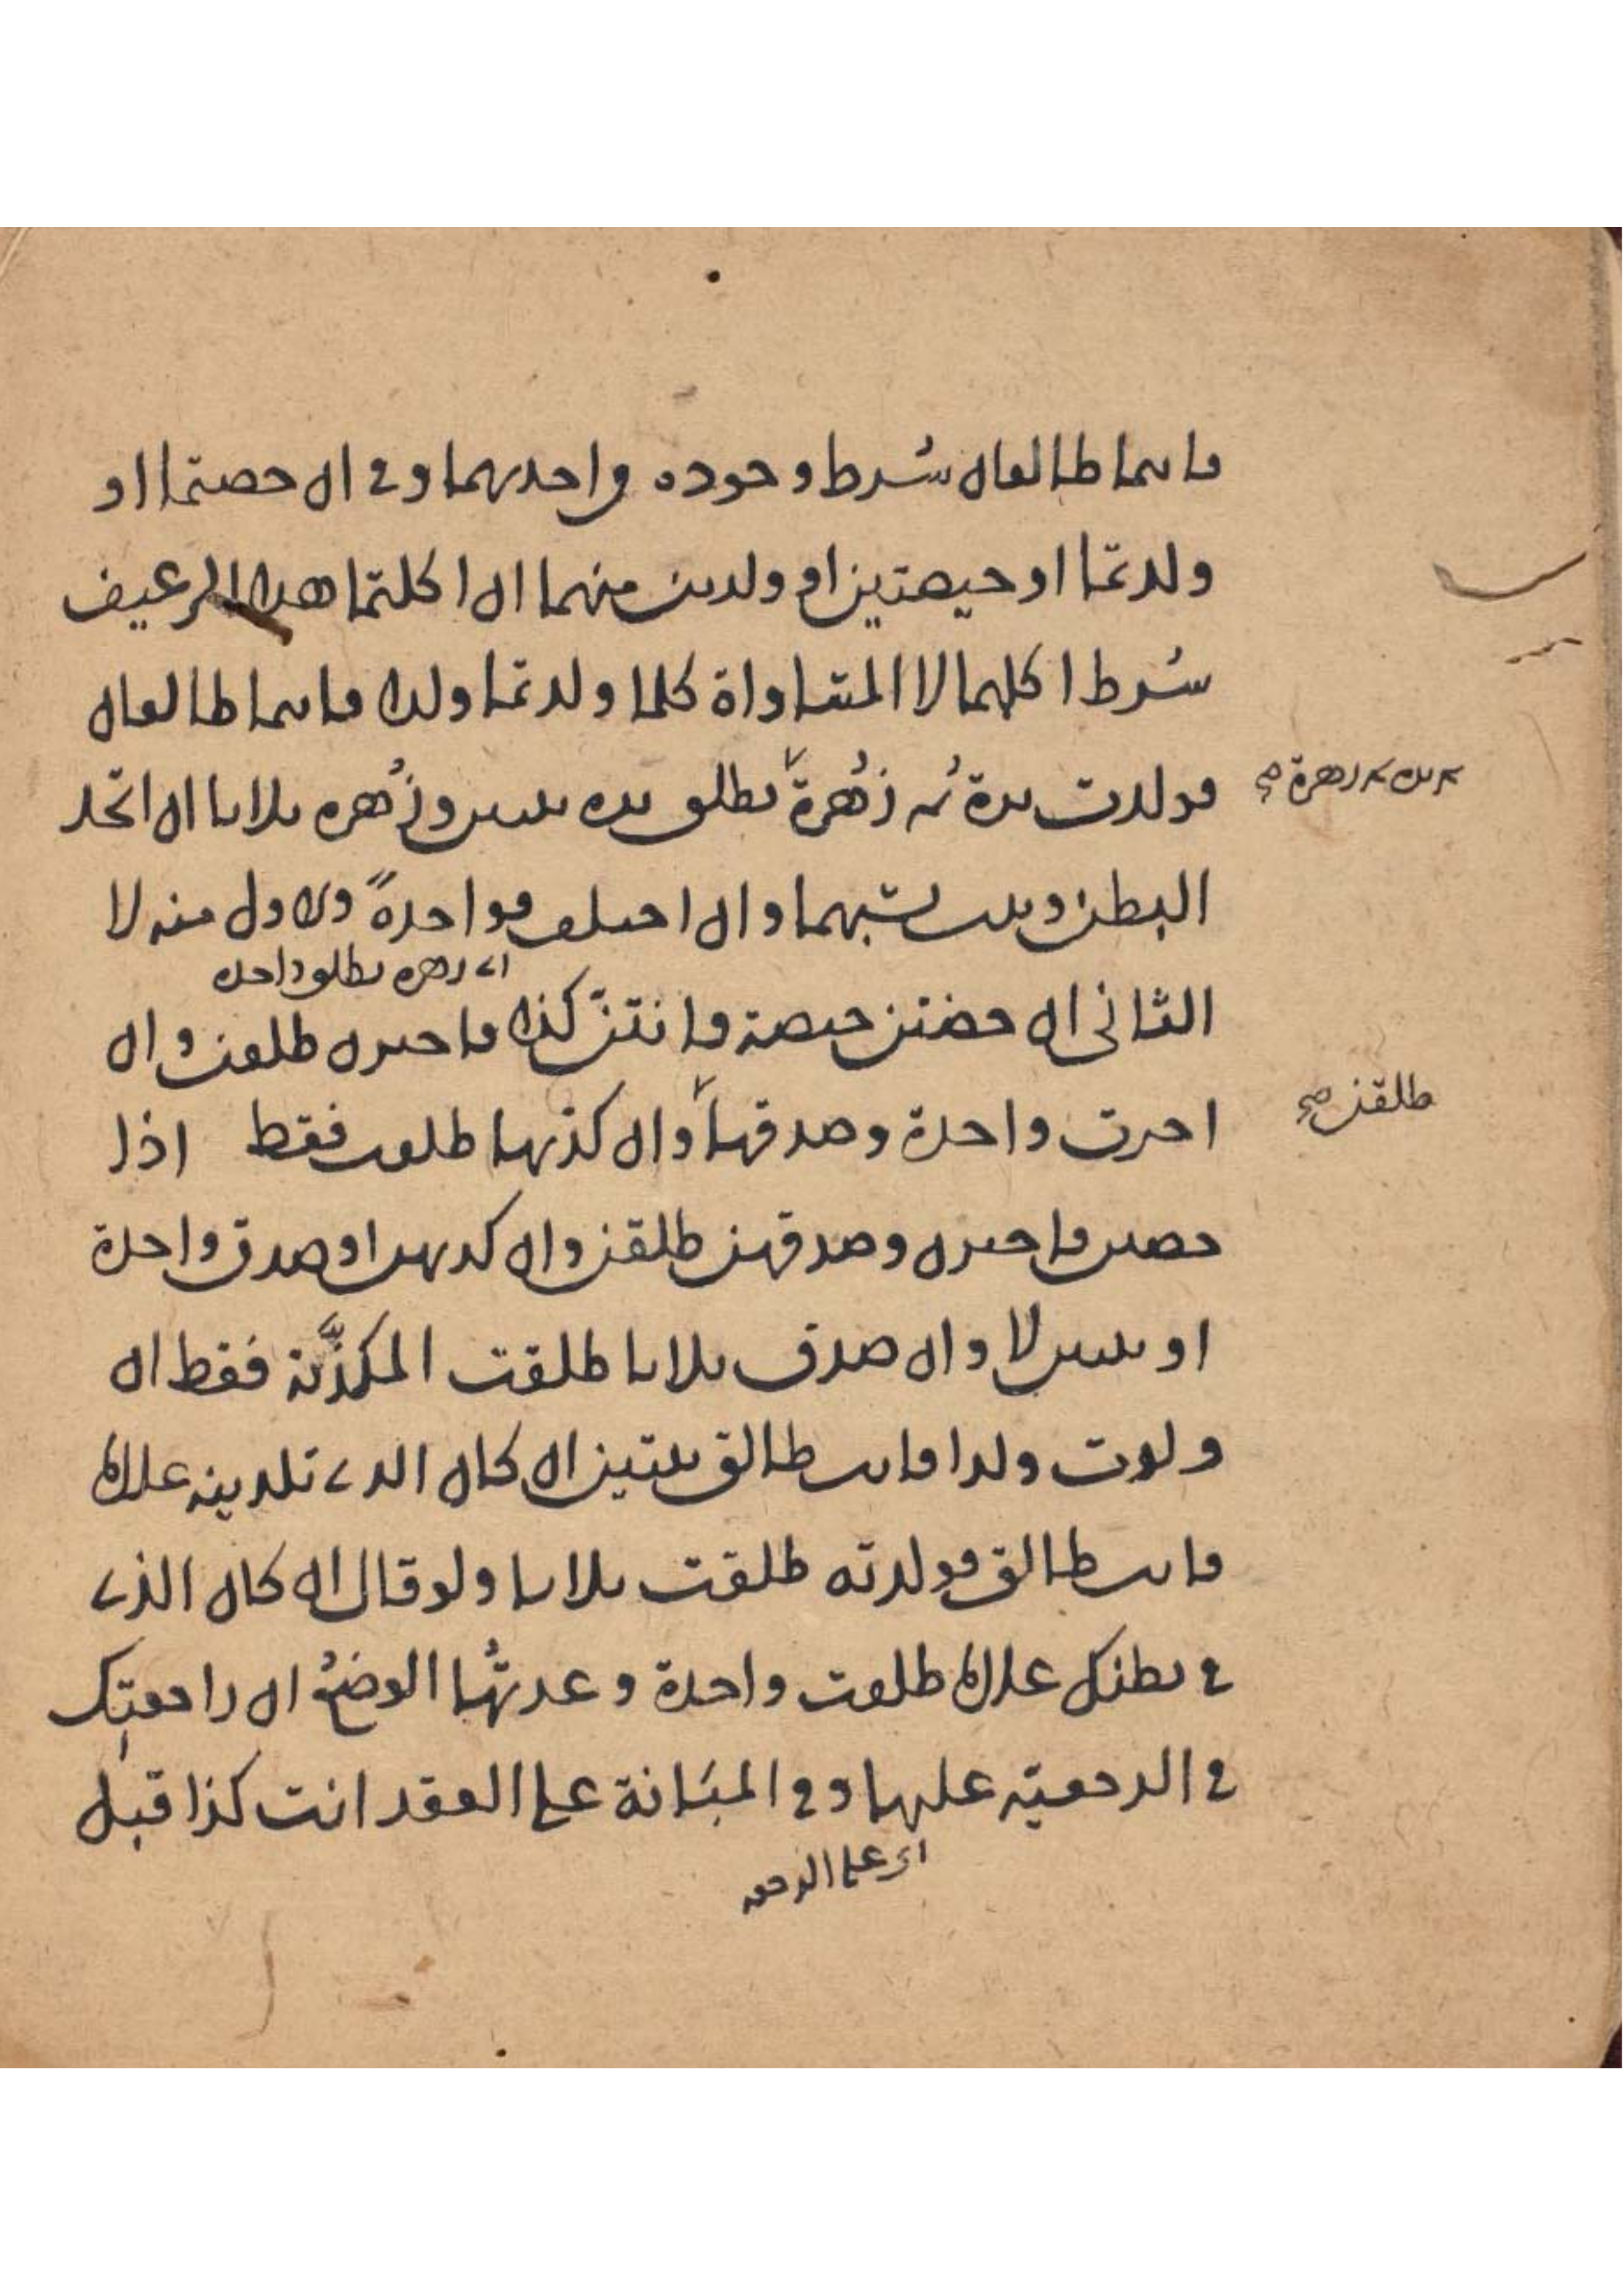 فانتما طالقان شرط وجوده واحدىهما وفي ان حضتما او
ولدتما او حيضتين او ولدين منهما ان اكلتما هذا الرغيف
شرط اكلهما لا المتساواة كلما ولدتما ولدا فانتما طالقان
فولدت عمرة ثم زهرة تطلق عمرة ثنتين وزهره ثلاثا ان اتحد
ثم زهرة صح
البطن ويثبت نسبهما وان اختلف فواحدة والاول منه لا
اي زهره تطلق واحدة
الثاني ان حضتن حيضة فانتن كذا فاخبرن طلقن وان
اخبرت واحدة وصدقها وان كذبها طلقت فقط اذا
طلقن صح
حضن فاخبرن وصدقهن طلقن وان كذبهن او صدق واحدة
او ثنتين لا وان صدق ثلاثا طلقت المكذبة فقط ان
ولدت ولدا فانت طالق ثنتين ان كان الذي تلدينه غلاما
فانت طالق فولدته طلقت ثلاثا ولو قال ان كان الذي
في بطنك غلاما طلقت واحدة وعدتها الوضع ان راجعتك
في الرجعية عليها وفي المبانة على العقد انت كذا قبل
اي على الرجعة